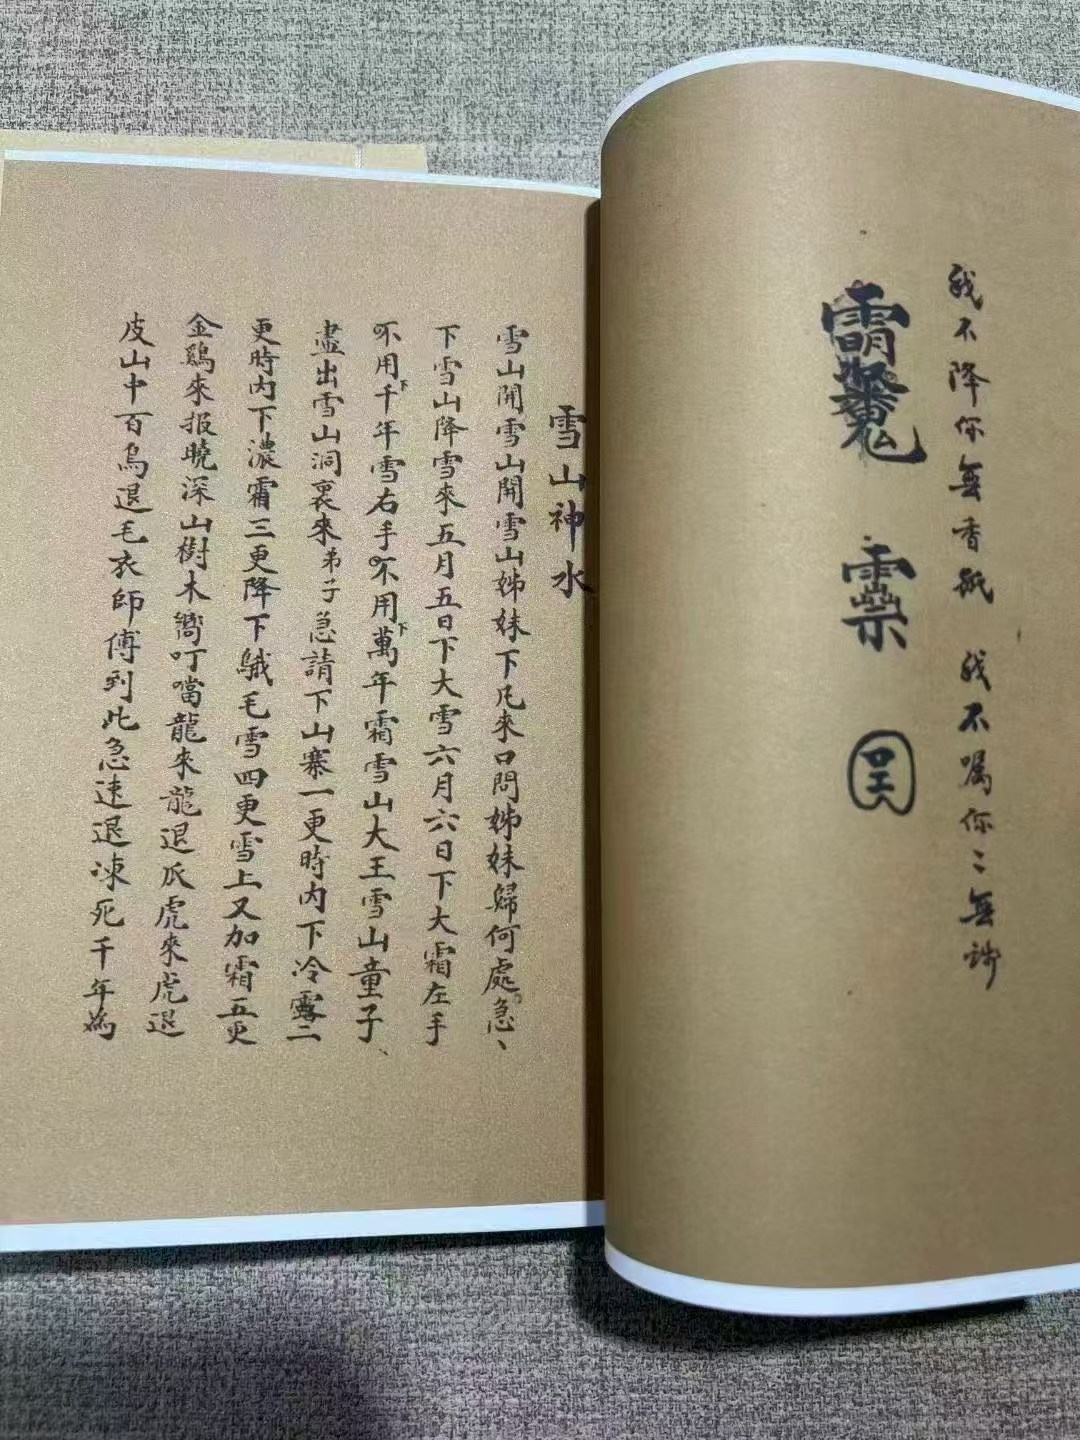 我不降你無香紙 我不嘱你〻無
雪山神水
雪山開雪山開雪山姊妹下凡來口問姊妹歸何處急〻
下雪山降雪來五月五日下大雪六月六日下大霜左手
不用千年雪右手不用萬年霜雪山大王雪山童子、
下 下
盡出雪山洞裏來弟子急請下山寨一更時内下冷露二
更時内下濃霜三更降下鵝毛雪四更雪上又加霜五更
金鷄來报曉深山樹木嚮叮噹龍來龍退爪虎來虎退
皮山中百鸟退毛衣師傅到此急速退凍死千年為